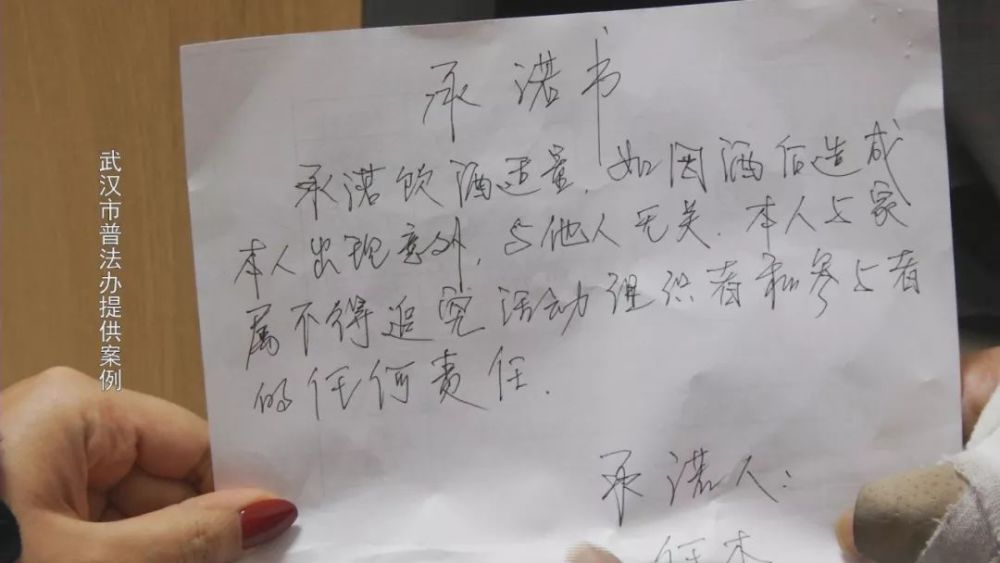 武汉市普法办提供案例
承诺书
承诺饮酒适量,如因酒后造成
本人出现意外,与他人无关.本人与家
属不得追究活动组织者和参与者
的任何责任.
承诺人:
任本